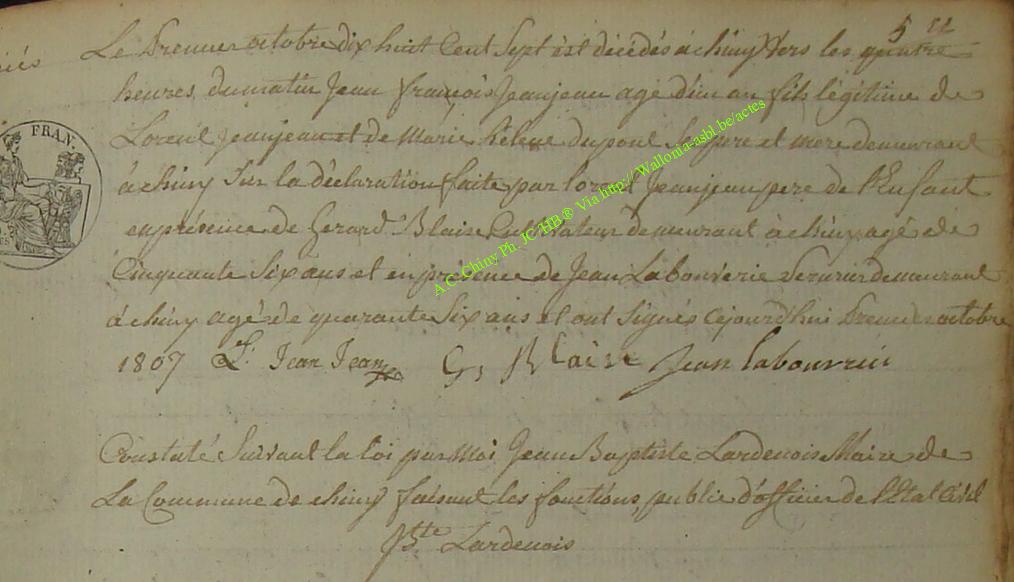 5 11
Le Premier octobre dix huit Cent Sept est décédés à chiny Vers les quatre
heures du matin Jean françois Jeanjean agé d'un an fils légitime de
Lorent Jeanjean et de Marie héléne dupont Ses pere et mere demeurant
à chiny Sur la déclaration faite par lorent Jeanjean pere de l'Enfant
en présence de Gerard Blaise Cultivateur demeurant à chiny agé de
Cinquante Six ans et en présence de Jean Labouverie Serurier demeurant
à chiny agé de quarante Six ans et ont Signés cejourd'hui Premier octobre
1807 L: Jean Jean G, Blaise Jean labouverie
Constaté Suivant la loi par Moi Jean Baptiste Lardenois Maire de
La Commune de chiny faisant les fonctions, public d'officier de l'Etat Civil
JBte Lardenois
FRAN.
A.C. Chiny Ph. JC HB ® Via http://Wallonia-asbl.be/actes